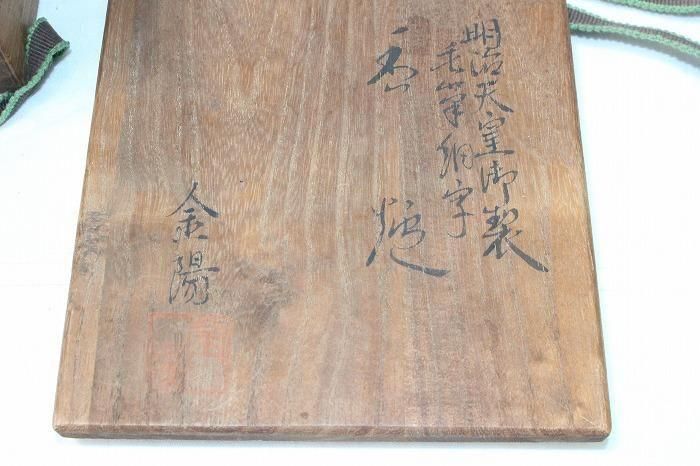 明治天皇御製
毛筆細字
香爐
金陽